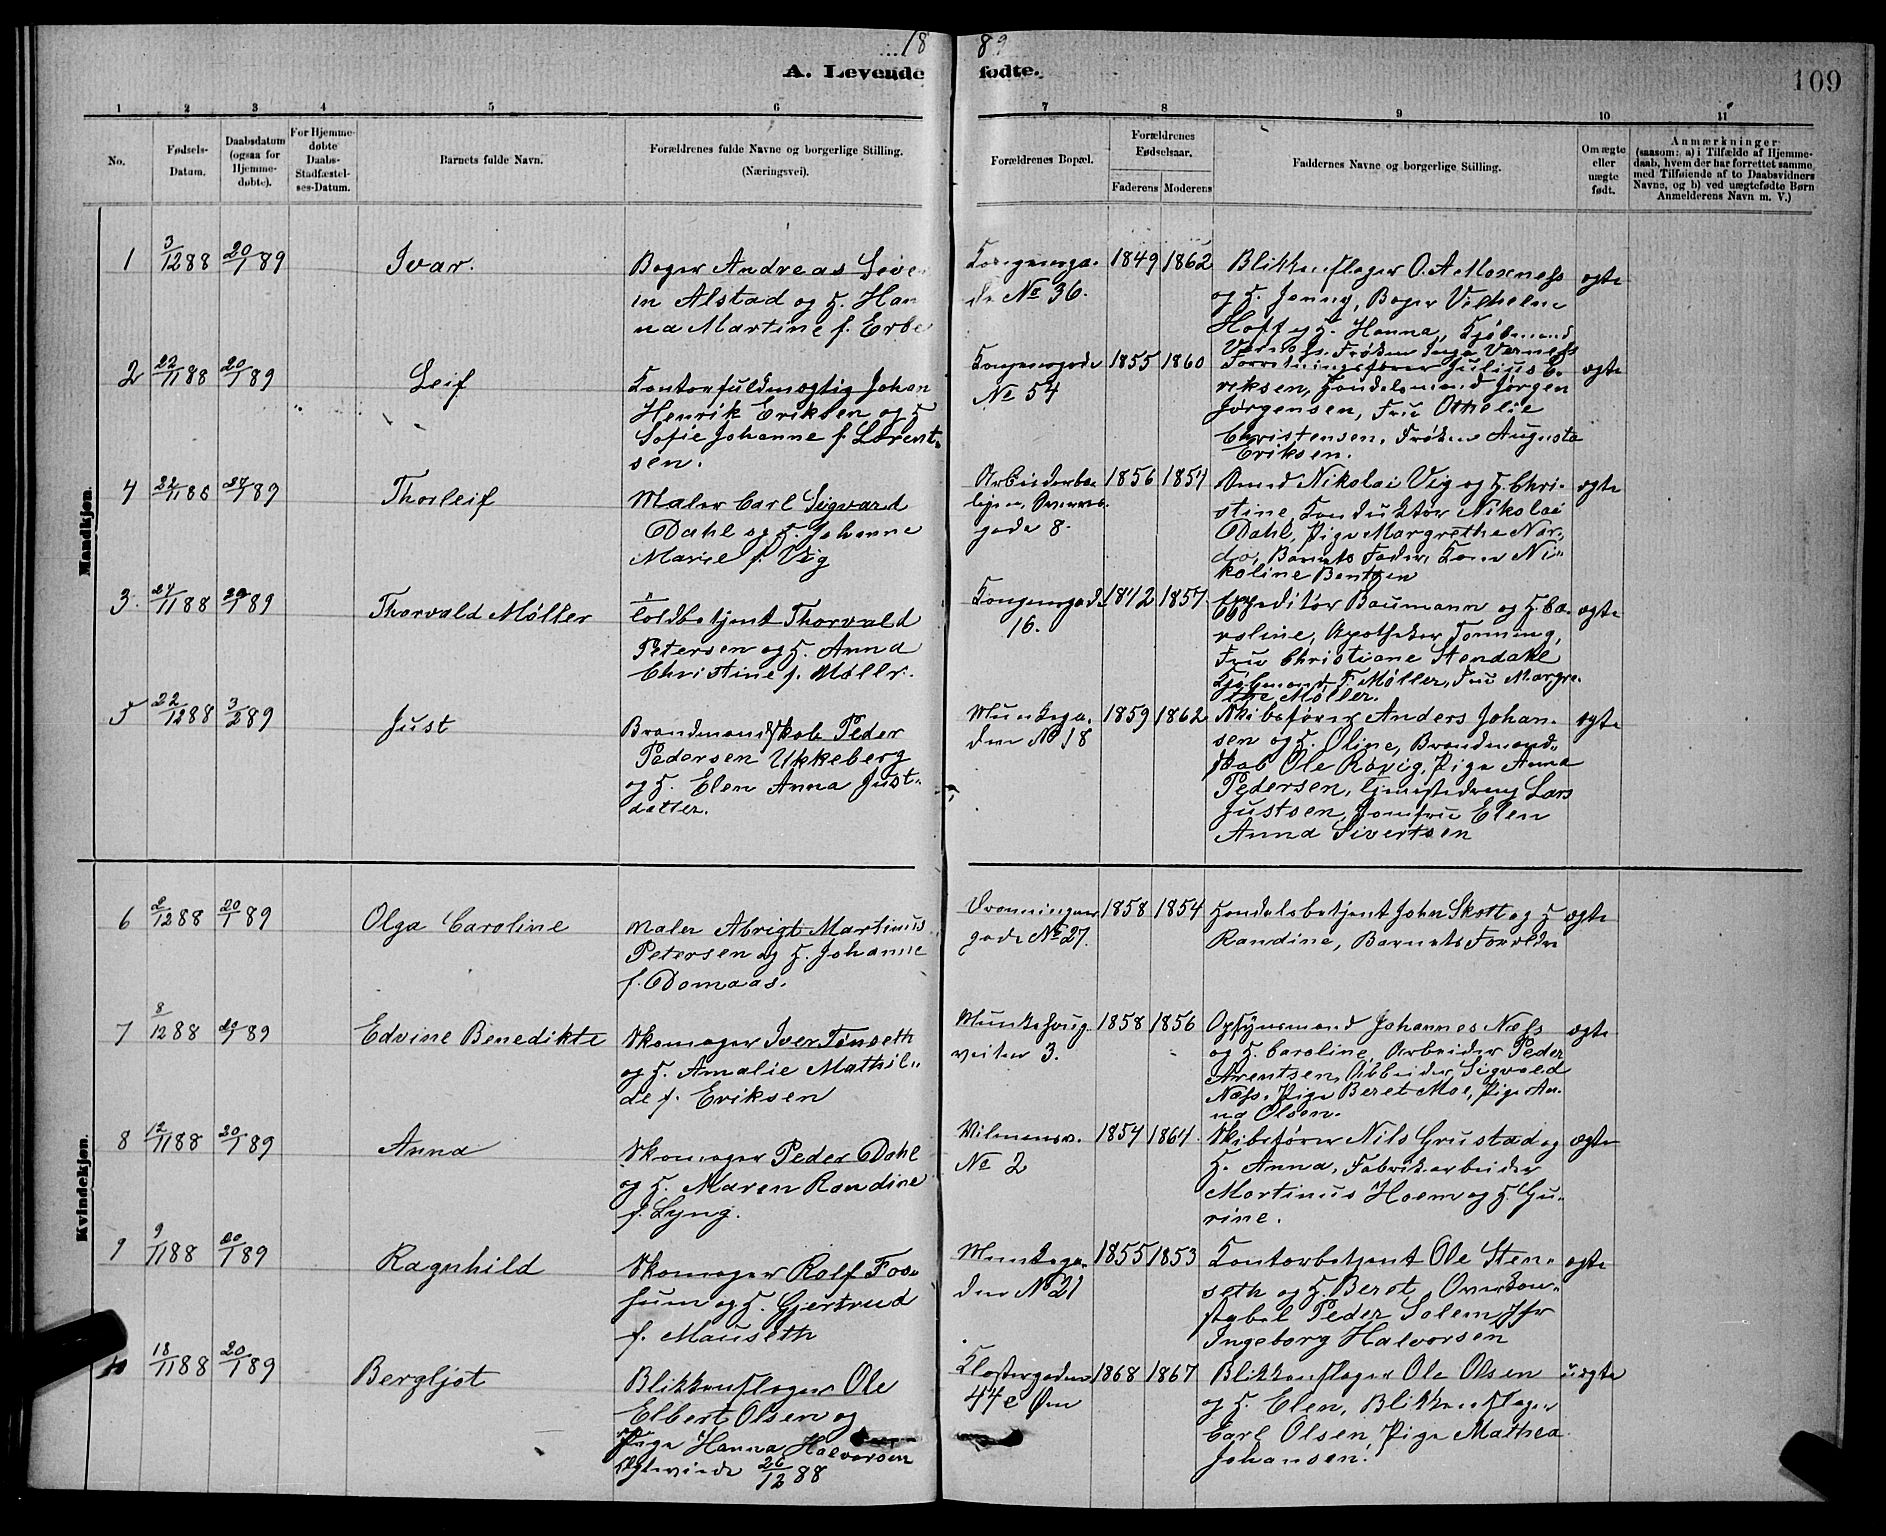 18 89
A. Levende fødte.
109
1 2 3 4 5 6 7 8 9 10 11
No.
Fødsels-
Datum.
Daabsdatum
(ogsaa for
Hjemme-
døbte).
For Hjemme-
døbte
Daabs-
Stadfæstel-
ses-Datum.
Barnets fulde Navn.
Forældrenes fulde Navne og borgerlige Stilling.
(Næringsvei).
Forældrenes Bopæl.
Forældrenes
Fødselsaar.
Faderens Moderens
Faddernes Navne og borgerlige Stilling.
Om ægte
eller
uægte
født.
Anmærkninger
(saasom: a) i Tilfælde af Hjemme-
daab, hvem der har forrettet samme,
med Tilføiende af to Daabsvidners
Navne, og b) ved uægtefødte Børn
Anmelderens Navn m. V.)
Mandkjøn.
1 3/12 88 20/1 89 Ivar.
Bager Andreas
in Alstad og H. Han
na Martine f.
Kongensga-
de No 36.
1849 1862
Blikkenslager O. A Moxness
og H. Jenny, Bager Vilhelm
Hoff og H. Hanna, Kjøbmand
Frøken Inga Verness
ægte
2 22/11 88 20/1 89 Leif
Kontorfuldmægtig Johan
Henrik Eriksen og H
Sofie Johanne f. Lorent-
sen.
Kongensgade
No 54
1855 1860
Forretningsfører Julius E-
riksen, Handelsmand Jørgen
Jørgensen, Fru Othelie
Christensen, Frøken Augusta
Eriksen.
ægte
4 22/11 88 /1 89 Thorleif
Maler Carl Sigvard
Dahl og H. Johanne
Marie f. Vig
Arbeiderbo-
ligen,
gade 8.
1856 1854
Nikolai Vig og H. Chri-
stine, Konduktør Nikolai
Dahl, Pige Margrethe Nar-
do, Barnets Fader, Kone Ni-
koline Bentzen
ægte
3. 24/11 88 20/1 89 Thorvald Møller
Toldbetjent Thorvald
Petersen og H. Anna
Christine f. Møller.
Kongensgade
16.
1842 1857
Expeditør Baumann og H. Ca-
roline, Apotheker Tonning,
Fru Christiane Stendahl
Kjøbmand F. Møller, Fru Margre-
the Møller.
ægte
5 22/12 88 3/2 89 Just
Brandmandskab Peder
Pedersen Ukkeberg
og H. Elen Anna Just-
datter.
Munkega-
den No 18
1859 1862
Skibsfører Anders Johan-
sen og H. Oline, Brandmand-
skab Ole Røvig, Pige Anna
Pedersen, Tjenestedreng Lars
Justsen, Jomfru Elen
Anna Sivertsen
ægte
Kvindekjøn.
6 2/12 88 20/1 89 Olga Caroline
Maler Abrigt Martinus
Petersen og H. Johanne
f. Domaas.
Dronningens
gade No 27.
1858 1854
Handelsbetjent John Skott og H
Randine, Barnets Forældre
ægte
7 8/12 88 20/1 89 Edvine Benedikte
Skomager Iver Tønseth
og H. Amalie Mathil-
de f. Eriksen
Munkehaug-
veiten 3.
1858 1856
Opsynsmand Johannes Næss
og H. Caroline, Arbeider Peder
Arentsen, Arbeider Sigvald
Næss, Pige Beret Moe, Pige An-
na Olsen.
ægte
8 12/11 88 20/1 89 Anna
Skomager Peder Dahl
og H. Maren Randine
f. Lyng.
No 2
1854 1864
Skibsfører Nils Grustad og
H. Anna, Fabrikarbeider
Martinus Hoem og H. Gu-
rine.
ægte
9 9/11 88 20/1 89 Ragnhild
Skomager Rolf Fos-
sum og H. Gjertrud
f. Mauseth
Munkega-
den No 21
1855 1853
Kontorbetjent Ole Sten-
seth og H. Beret, Overkon-
stabel Peder Solem, Jfr
Ingeborg Halvorsen
ægte
10 18/11 88 20/1 89 Bergljot
Blikkenslager Ole
Elbert Olsen og
Pige Hanna Halvorsen
Ægteviede 26/12 88
Klostergaden
44c Øen
1868 1867
Blikkenslager Ole Olsen
og H. Elen, Blikkenslager
Carl Olsen, Pige Mathea
Johansen.
uægte